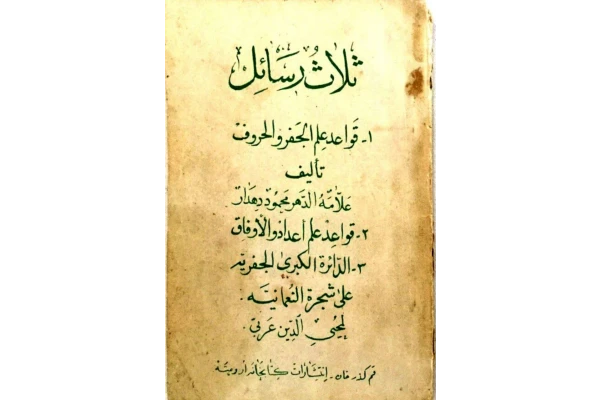 ثلاثُ رسَائِل
١- قَواعد عِلم الجَفر والحروف
تأليف
علّامه الدّهر محمود دهدار
٢- قواعد علم اعداد والاوفاق
٣- الدّائرة الكبرىٰ الجفرية
علىٰ شجرة النّعمانيّه .
لمحيي الدّين عربي .
قم گذرخان - انتشارات كتابخانه اروميّة